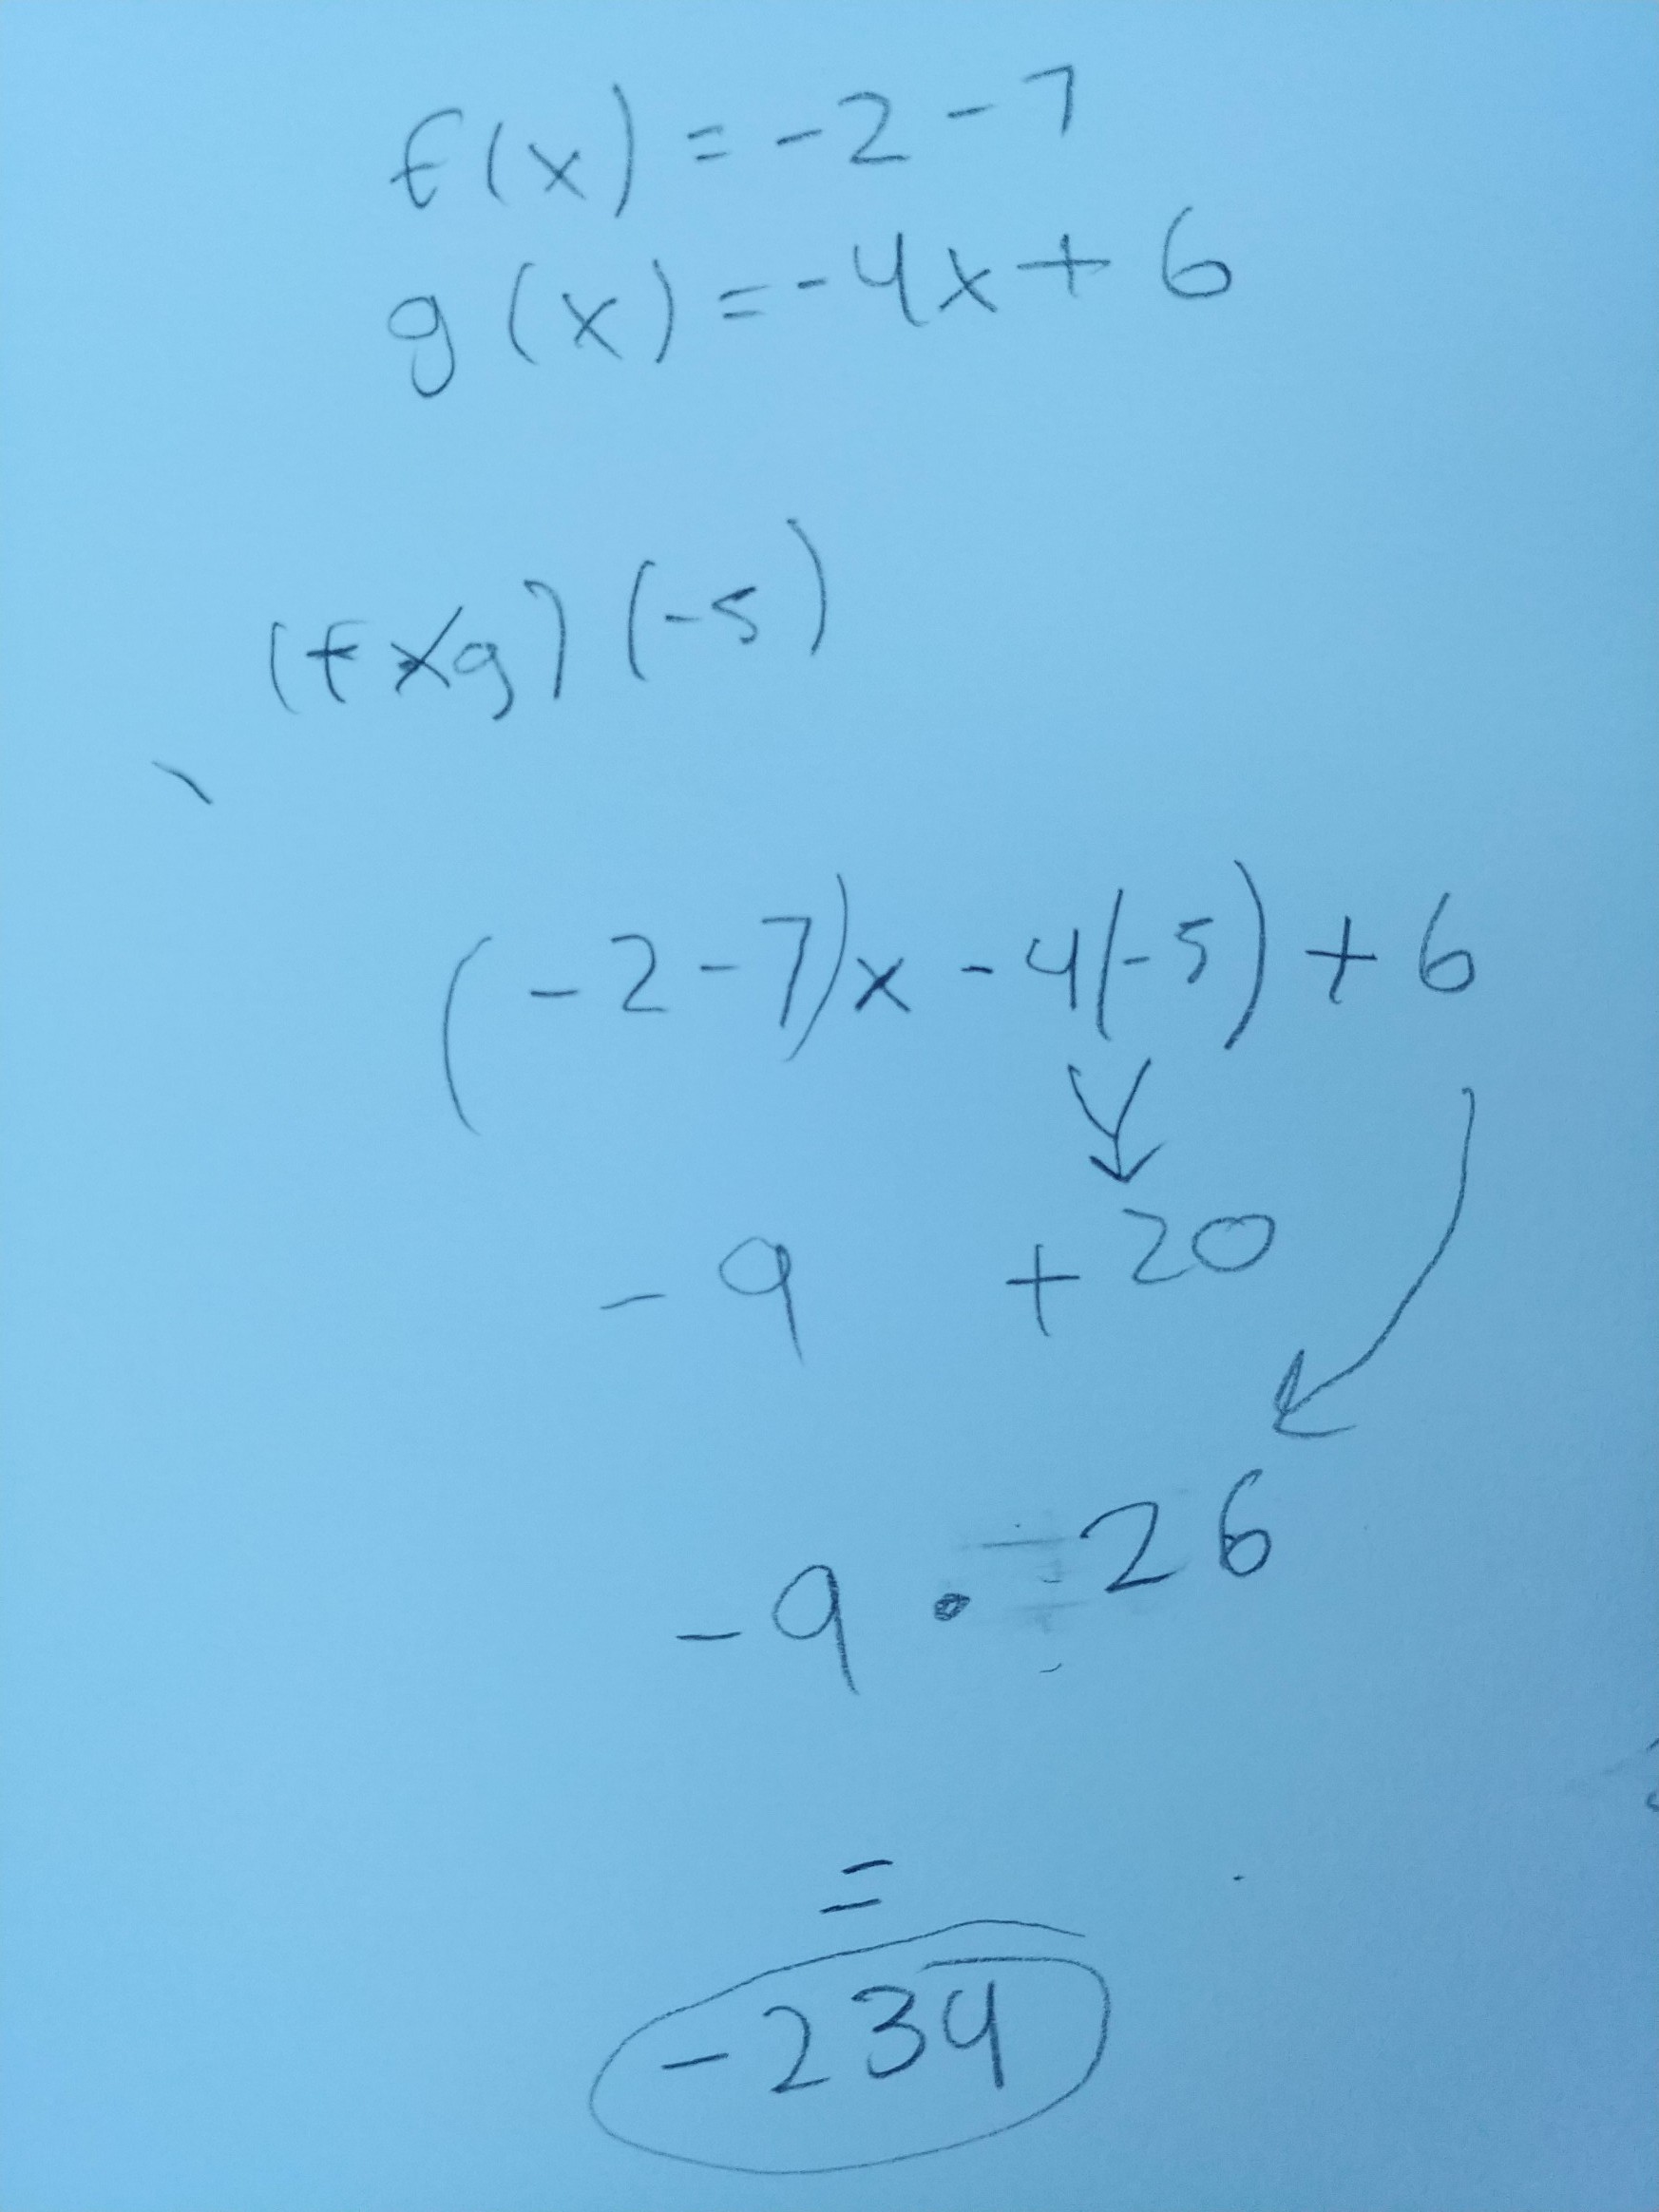 f(x) = -2 - 7
g(x) = -4x + 6
(f x g) (-5)
(-2 - 7) x - 4(-5) + 6
-9 + 20
-9 • 26
=
-234